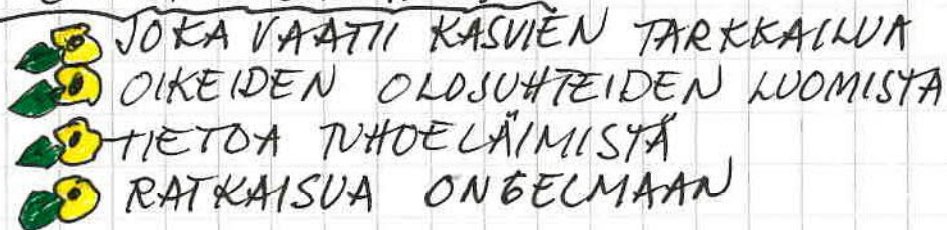 JOKA VAATII KASVIEN TARKKAILUA
OIKEIDEN OLOSUHTEIDEN LUOMISTA
TIETOA TUHOELÄIMISTÄ
RATKAISUA ONGELMAAN